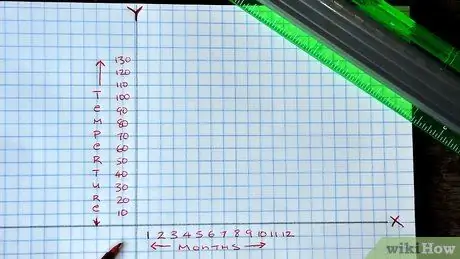 Y
130
120
110
100
90
80
70
60
50
40
30
20
10
TEMPERTURE
X
1 2 3 4 5 6 7 8 9 10 11 12
MONTHS
wikiHow